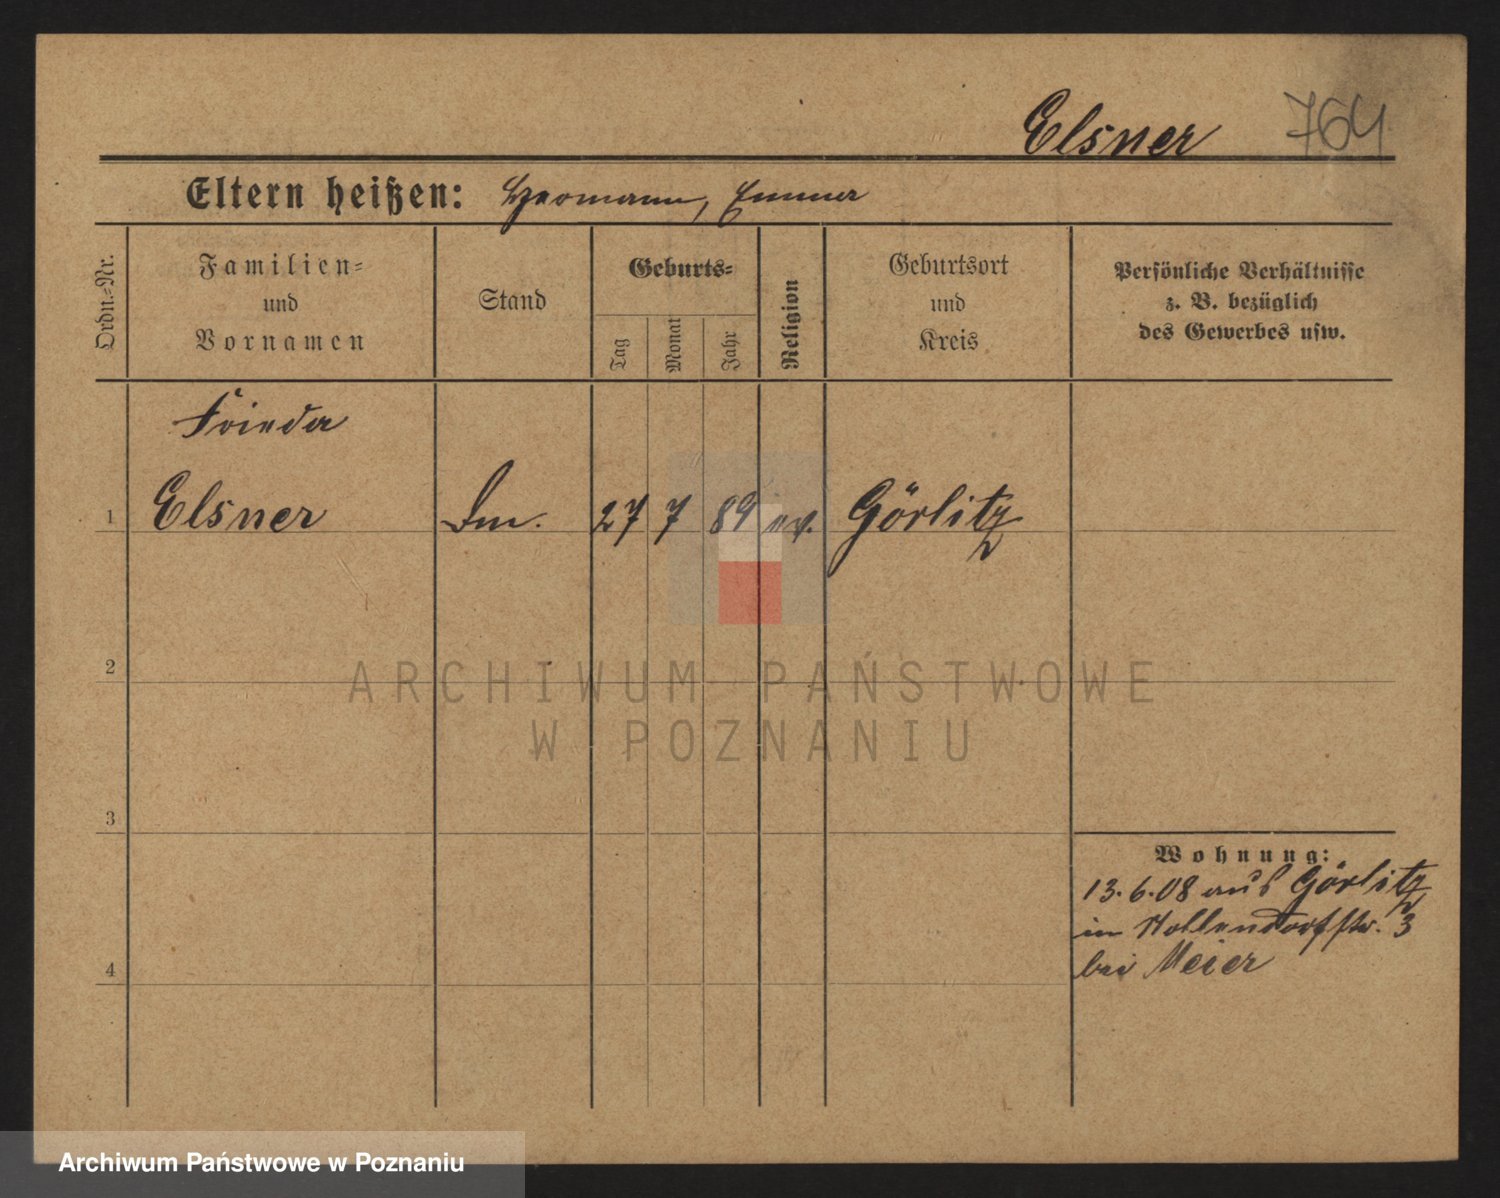 Elsner 764
Eltern heißen: Hermann, Emma
Ordn.-Nr.
Familien-
und
Vornamen
Stand
Geburts-
Tag
Monat
Jahr
Religion
Geburtsort
und
Kreis
Persönliche Verhältnisse
z. B. bezüglich
des Gewerbes usw.
Frieda
1 Elsner 27 7 89 ev. Görlitz
2
3
4
Wohnung:
13.6.08 aus Görlitz
in Nollendorfstr. 3
bei Meier
ARCHIWUM PAŃSTWOWE
W POZNANIU
Archiwum Państwowe w Poznaniu